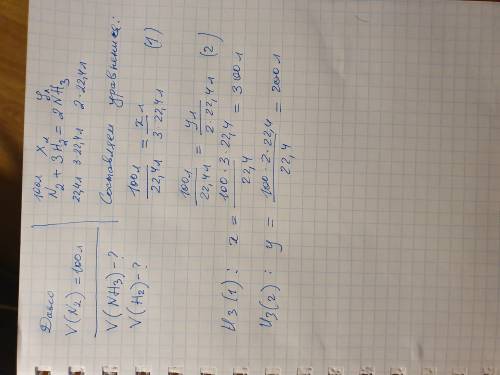 Дано
V(N₂) = 100л
V(NH₃) - ?
V(H₂) - ?
100л xл yл
N₂ + 3H₂ = 2NH₃
22,4л 3·22,4л 2·22,4л
Составляем уравнение:
100л/22,4л = xл/3·22,4л (1)
100л/22,4л = yл/2·22,4л (2)
Из (1): x = 100·3·22,4/22,4 = 300л
Из (2): y = 100·2·22,4/22,4 = 200л